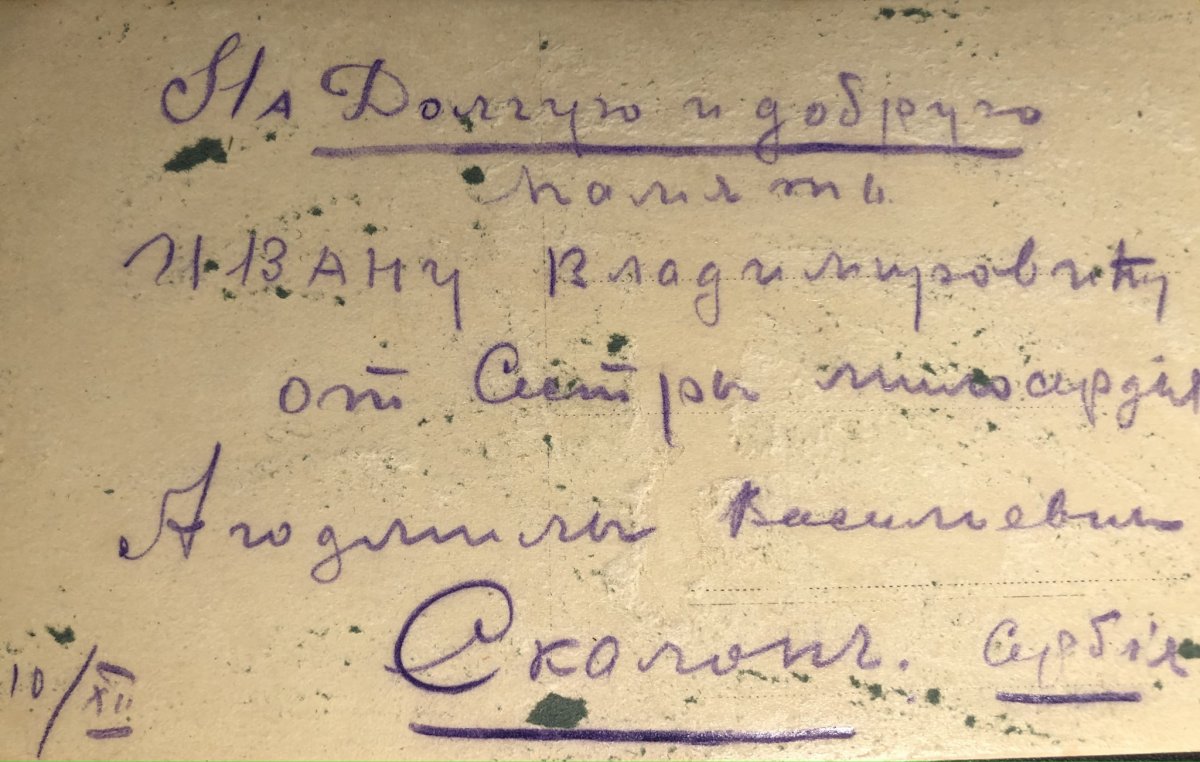 На Долгую и добрую
память
Ивану Владимировичу
от Сестры милосердія
Людмилы Васильевны
Скалонъ. Сербія
10/XII